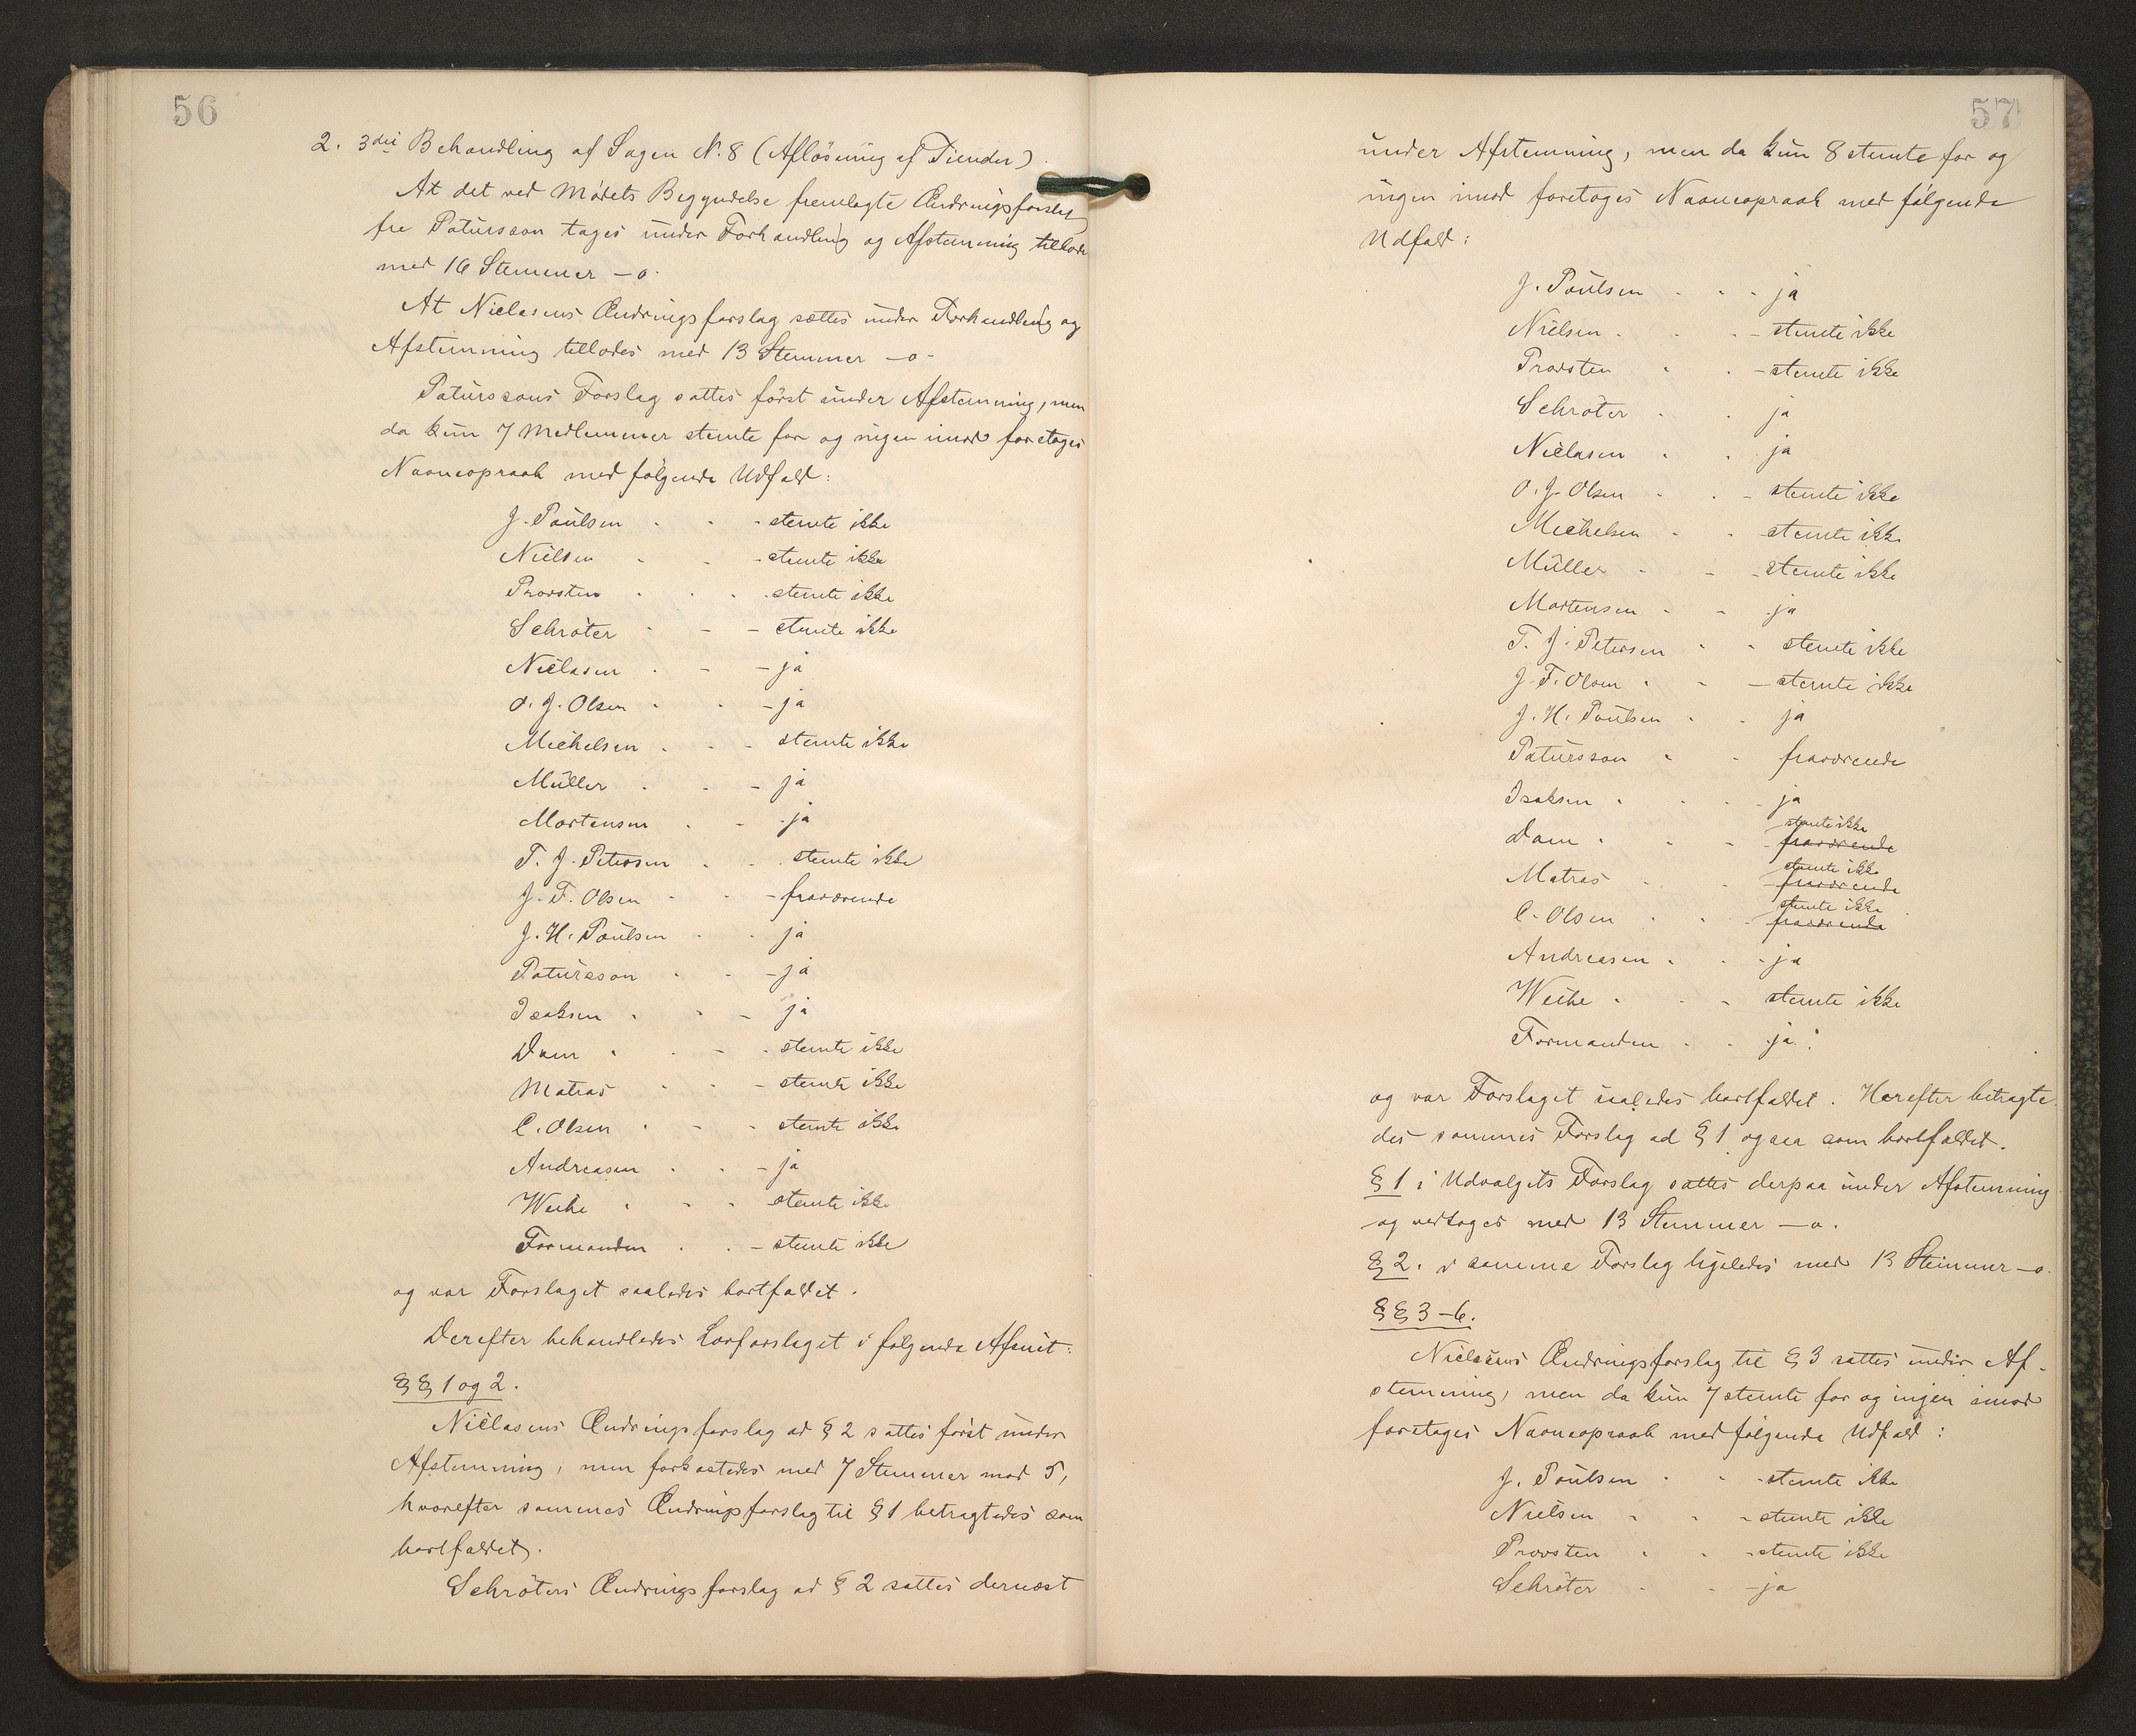 56
2. 3die Behandling af Sagen N. 8 (Aflösning af Tiender).
At det ved Mødets Begyndelse fremlagte Ændringsforslag
fra Patursson toges under Forhandling og Afstemning tillodes
med 16 Stemmer – o.
At Niclasens Ændringsforslag sattes under Forhandling og
Afstemning tillodes med 13 Stemmer – o –
Paturssons Forslag sattes först under Afstemning, men
da kun 7 Medlemmer stemte for og ingen imod foretoges
Navneopraab med følgende Udfald:
J. Poulsen - - - stemte ikke
Nielsen - - - stemte ikke
Provsten - - - stemte ikke
Schröter - - - stemte ikke
Niclasen - - - ja
O. J. Olsen - - - ja
Michelsen - - - stemte ikke
Müller - - - ja
Mortensen - - - ja
T. J. Petersen - - - stemte ikke
J. F. Olsen - - - fraværende
J. H. Poulsen - - ja
Patursson - - - ja
Isaksen - - - ja
Dam - - - stemte ikke
Matras - - - stemte ikke
C. Olsen - - - stemte ikke
Andreasen - - - ja
Weihe - - - stemte ikke
Formanden - - - stemte ikke
og var Forslaget saaledes bortfaldet.
Derefter behandledes Lovforslaget i følgende Afsnit:
§§ 1 og 2.
Niclasens Ændringsforslag ad § 2 sattes först under
Afstemning, men forkastedes med 7 Stemmer mod 5,
hvorefter sammes Ændringsforslag til § 1 betragtedes som
bortfaldet.
Schröters Ændringsforslag ad § 2 sattes dernæst
57
under Afstemning, men da kun 8 stemte for og
ingen imod foretoges Navneopraab med følgende
Udfald:
J. Poulsen - - - ja
Nielsen - - - stemte ikke
Provsten - - - stemte ikke
Schröter - - ja
Niclasen - - ja
O. J. Olsen - - - stemte ikke
Michelsen - - stemte ikke
Müller - - - stemte ikke
Mortensen - - ja
T. J. Petersen - - stemte ikke
J. F. Olsen - - - stemte ikke
J. H. Poulsen - - ja
Patursson - - fraværende
Isaksen - - - ja
Dam - - - stemte ikke fraværende
Matras - - stemte ikke fraværende
C. Olsen - - - stemte ikke fraværende
Andreasen - - - ja
Weihe - - - stemte ikke
Formanden - - ja:
og var Forslaget saaledes bortfaldet. Herefter betragte
des sammes Forslag ad § 1 ogsaa som bortfaldet.
§ 1 i Udvalgets Forslag sattes derpaa under Afstemning
og vedtoges med 13 Stemmer – o.
§ 2. i samme Forslag ligeledes med 13 Stemmer – o.
§§ 3–6.
Niclasens Ændringsforslag til § 3 sattes under Af-
stemning, men da kun 7 stemte for og ingen imod
foretoges Navneopraab med følgende Udfald:
J. Poulsen - - - stemte ikke
Nielsen - - - stemte ikke
Provsten - - - stemte ikke
Schröter - - - ja